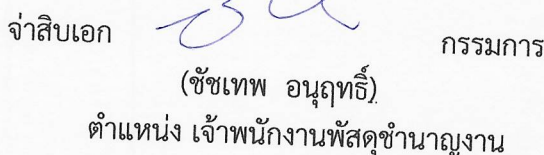 จ่าสิบเอก กรรมการ
(ชัชเทพ อนุฤทธิ์)
ตำแหน่ง เจ้าพนักงานพัสดุชำนาญงาน